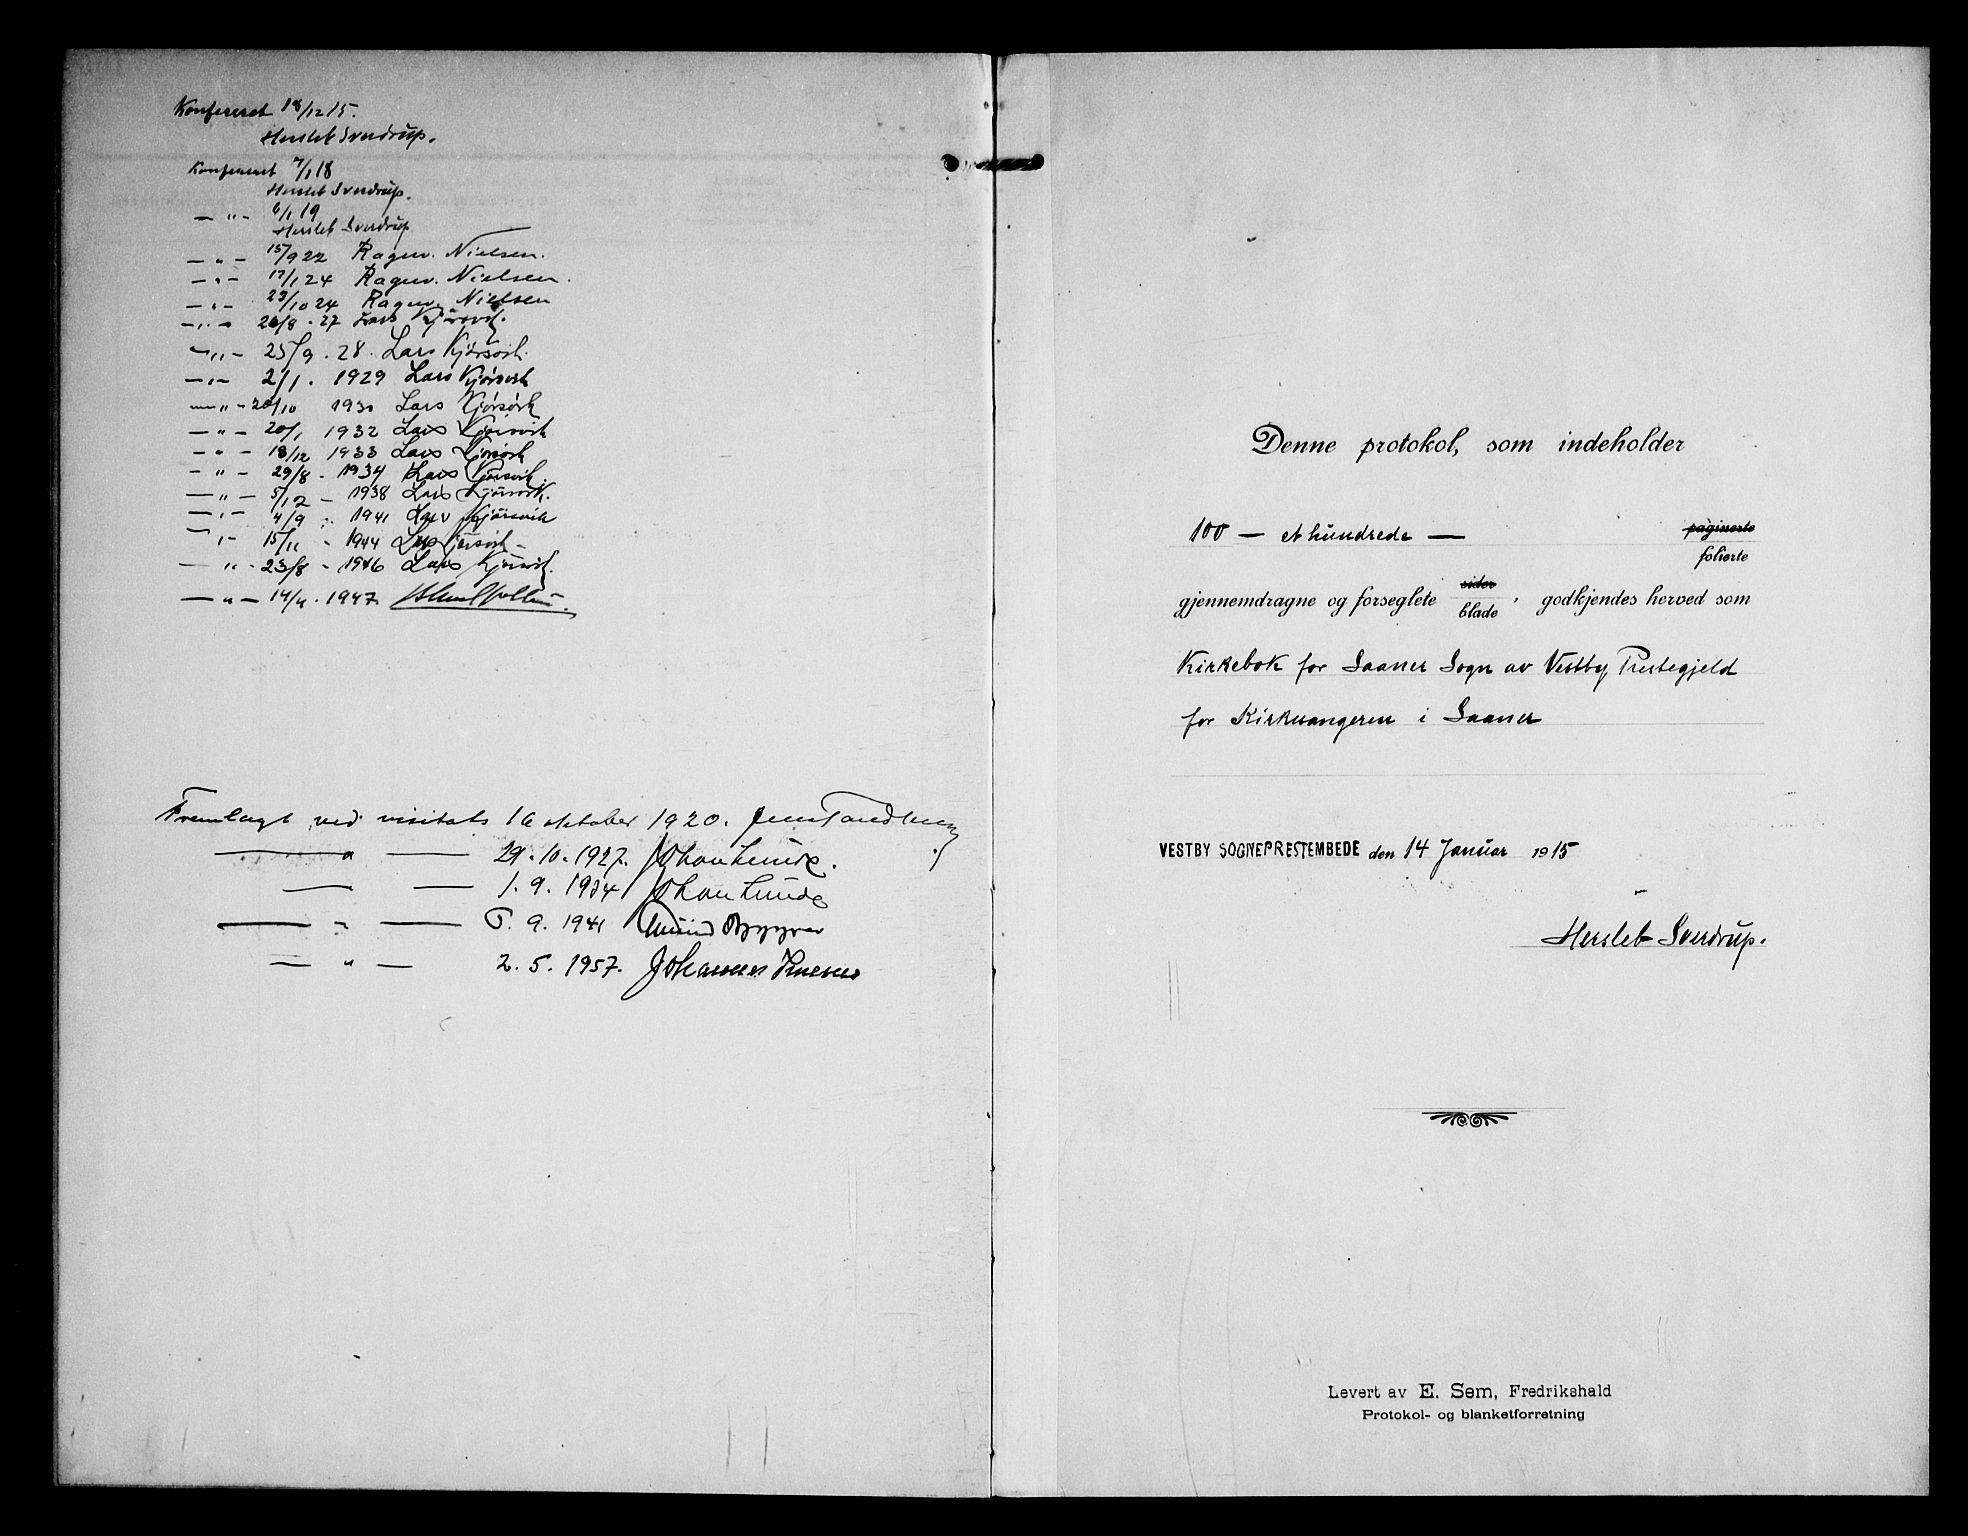 Konfereret 18/12 15.
Hersleb Sverdrup.
Konfereret 7/1 18
Hersleb Sverdrup.
— " — 6/1 19
Hersleb Sverdrup
— " — 15/9 22 Ragnv. Nielsen.
— " — 17/1 24 Ragnv. Nielsen.
— " — 29/10 24 Ragnv. Nielsen
— " — 26/8 - 27 Lars Kjörsvik.
— " — 25/9 . 28. Lars Kjörsvik.
— " — 2/1 . 1929 Lars Kjörsvik
— " — 20/10 1930 Lars Kjörsvik
— " — 20/1 1932 Lars Kjörsvik
— " — 18/12 1933 Lars Kjörsvik
— " — 29/8 - 1934 Lars Kjörsvik.
— " — 5/12 - 1938 Lars Kjörsvik.
— " — 4/9 - 1941 Lars Kjörsvik
— " — 15/11 - 1944 Lars Kjörsvik -
— " — 23/8 - 1946 Lars Kjörsvik.
— " — 14/4 . 1947
Fremlagt ved visitats 16 oktober 1920. Jens Tandberg
— " — 29.10.1927. Johan Lunde.
— " — 1. 9. 1934 Johan Lunde
— " — 5. 9. 1941
— " — 2. 5. 1957. Johannes Smemo
Denne protokol, som indeholder
100 — et hundrede — paginerte
folierte
gjennemdragne og forseglete sider
blade , godkjendes herved som
Kirkebok for Saaner Sogn av Vestby Prestegjeld
for Kirkesangeren i Saaner
VESTBY SOGNEPRESTEMBEDE den 14 Januar 1915
Hersleb Sverdrup.
Levert av E. Sem, Fredrikshald
Protokol- og blanketforretning